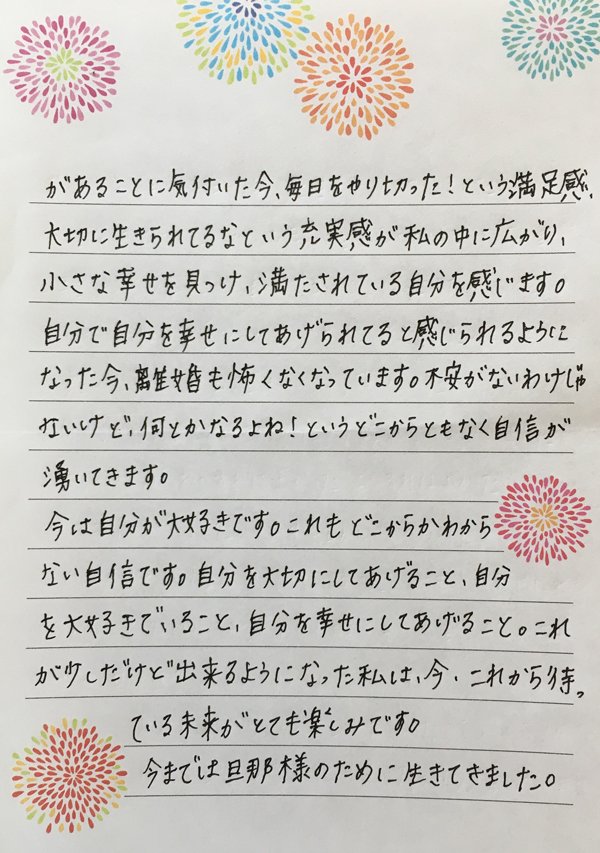 があることに気付いた今、毎日をやり切った！という満足感、
大切に生きられてるなという充実感が私の中に広がり、
小さな幸せを見つけ、満たされている自分を感じます。
自分で自分を幸せにしてあげられてると感じられるように
なった今、離婚も怖くなくなっています。不安がないわけじゃ
ないけど、何とかなるよね！というどこからともなく自信が
湧いてきます。
今は自分が大好きです。これもどこからかわから
ない自信です。自分を大切にしてあげること、自分
を大好きでいること、自分を幸せにしてあげること。これ
が少しだけど出来るようになった私は、今、これから待っ
ている未来がとても楽しみです。
今までは旦那様のために生きてきました。